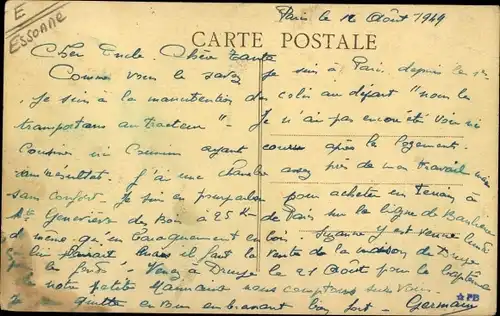 E
ESSONNE
Paris le 12 Août 1949
CARTE POSTALE
Cher Oncle. Chère Tante
Comme vous le savez je suis à Paris depuis le 1er
Je suis à la manutention des colis au départ "nous les
transportons au tracteur" - Je n'ai pas encore été voir ni
Cousine ni Cousin ayant couru après le logement
sans resultat. J'ai une chambre assez près de mon travail mais
sans confort. Je suis en pourparlers pour acheter un terrain à
Ste Geneviève des Bois à 25 Km de Paris sur la ligne de Banlieue
Suzanne y est venue lundi
de même qu'un baraquement en bois
ça lui plairait, mais il faut la vente de la maison de Druye
pour les fonds. Venez à Druye le 21 Août pour le baptême
de notre petite Maryvonne nous comptons sur vous.
Je vous quitte en vous embrassant bien fort - Germain
PB